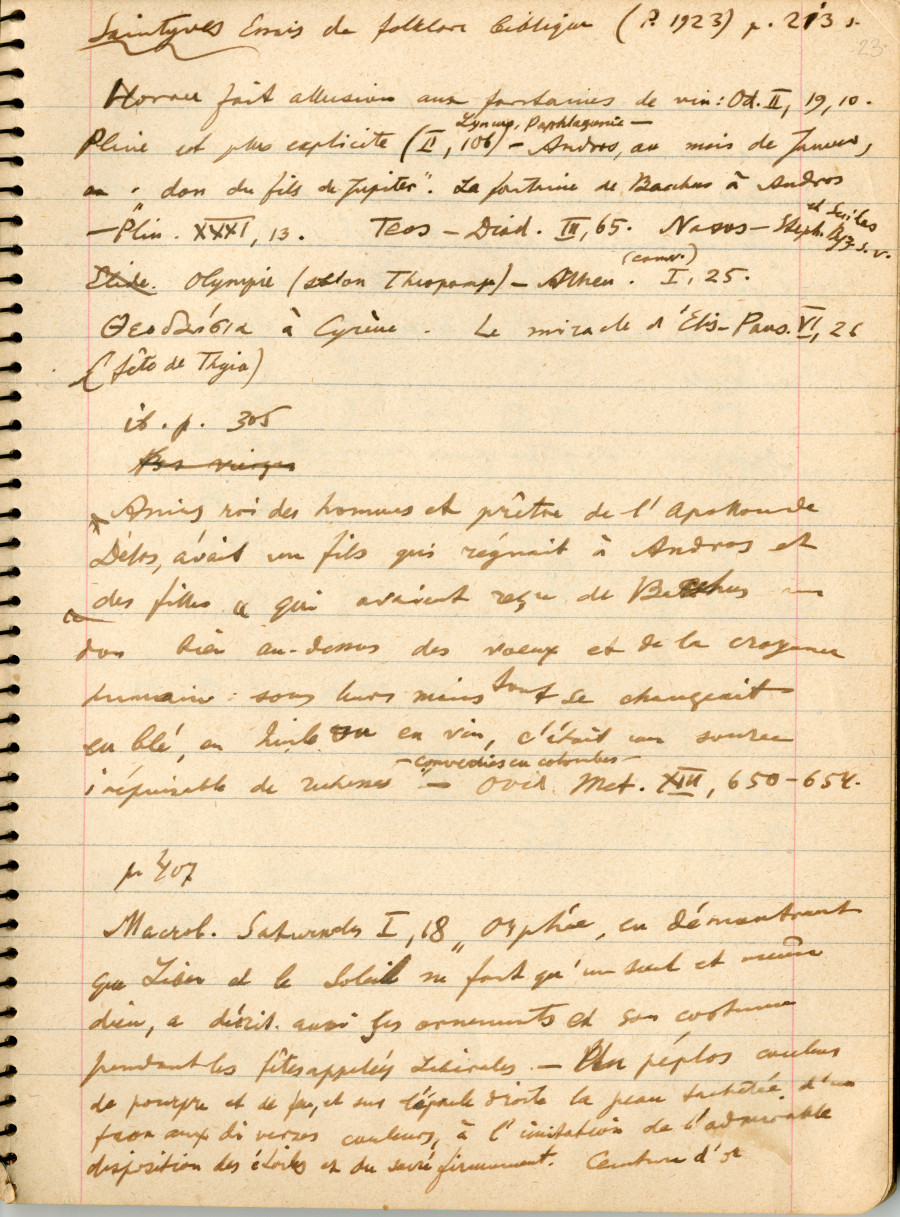 Saintyves Essais de folklore biblique (P. 1923) p. 213 s.
23
Homère fait allusion aux fontaines de vin: Od. II, 19, 10.
Lyncus, Paphlagonie —
Pline est plus explicite (II, 106) – Andros, au mois de Janvier,
au "don du fils de Jupiter". La fontaine de Bacchus à Andros
— Plin. XXXI, 13. Teos – Diod. III, 65. Naxos – Steph. Byz. s.v.
et Suidas
Elide. Olympie (selon Théopompe) – Athen. I, 25.
Θεοδαίσια à Cyrène. Le miracle d'Elis – Paus. VI, 26
(fête de Thyia)
ib. p. 305
Les vierges
Anius roi des hommes et prêtre de l'Apollon de
Délos, avait un fils qui régnait à Andros et
des filles "qui avaient reçu de Bacchus un
don bien au-dessus des voeux et de la croyance
humaine: sous leurs mains tout se changeait
en blé, en huile ou en vin, c'était une source
– converties en colombes –
inépuisable de richesses" – Ovid. Met. XIII, 650–654.
p. 407
Macrob. Saturnales I, 18 "Orphée, en démontrant
que Liber et le Soleil ne font qu'un seul et même
dieu, a décrit aussi ses ornements et son costume
pendant les fêtes appelées Liberales. — Un péplos couleur
de pourpre et de feu, et sur l'épaule droite la peau tachetée d'un
faon aux diverses couleurs, à l'imitation de l'admirable
disposition des étoiles et du sacré firmament. Ceinture d'or